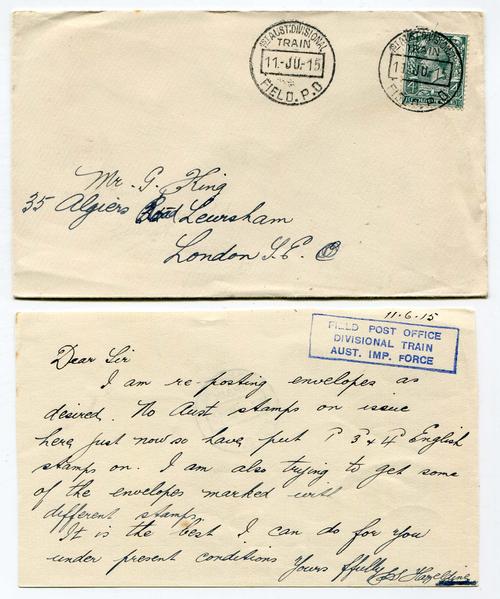 1st AUST: DIVISIONAL
TRAIN
11.-JU.-15
FIELD. P.O
TRAIN
11.JU.-15
FIELD. P.O
Mr. G. King
35 Algiers Road Lewisham
London S.E.
11.6.15
FIELD POST OFFICE
DIVISIONAL TRAIN
AUST. IMP. FORCE
Dear Sir
I am re-posting envelopes as
desired. No Aust stamps on issue
here just now so have put 3 & 4 English
stamps on. I am also trying to get some
of the envelopes marked with
different stamps
It is the best I can do for you
under present conditions Yours ffully